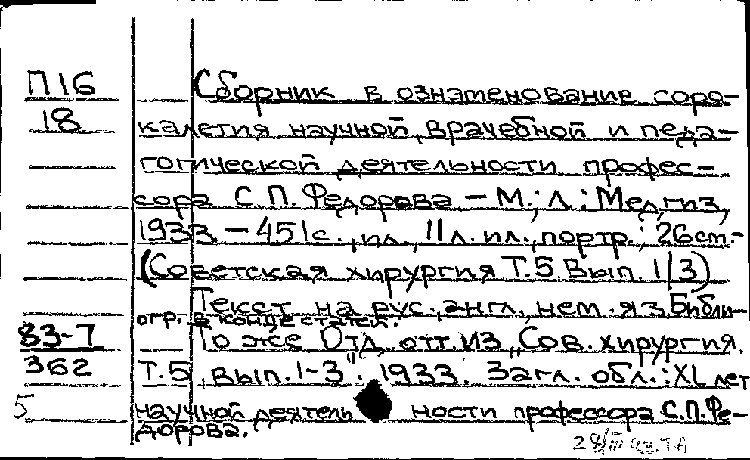 П16
18
Сборник в ознаменование соро-
калетия научной, врачебной и педа-
гогической деятельности профес-
сора С.П. Федорова – М.; Л.: Медгиз,
1933 – 451с., ил., 11л. ил., портр.; 26см.-
(Советская хирургия Т.5. Вып. 1/3)
Текст на рус., англ., нем. яз. Библи-
огр. в конце статей.
33-7
362
То же Отд. отт. из „Сов. хирургия.
Т.5, вып.1-3". 1933. Загл. обл.: XL лет
5
научной деятельности профессора С.П. Фе-
дорова.